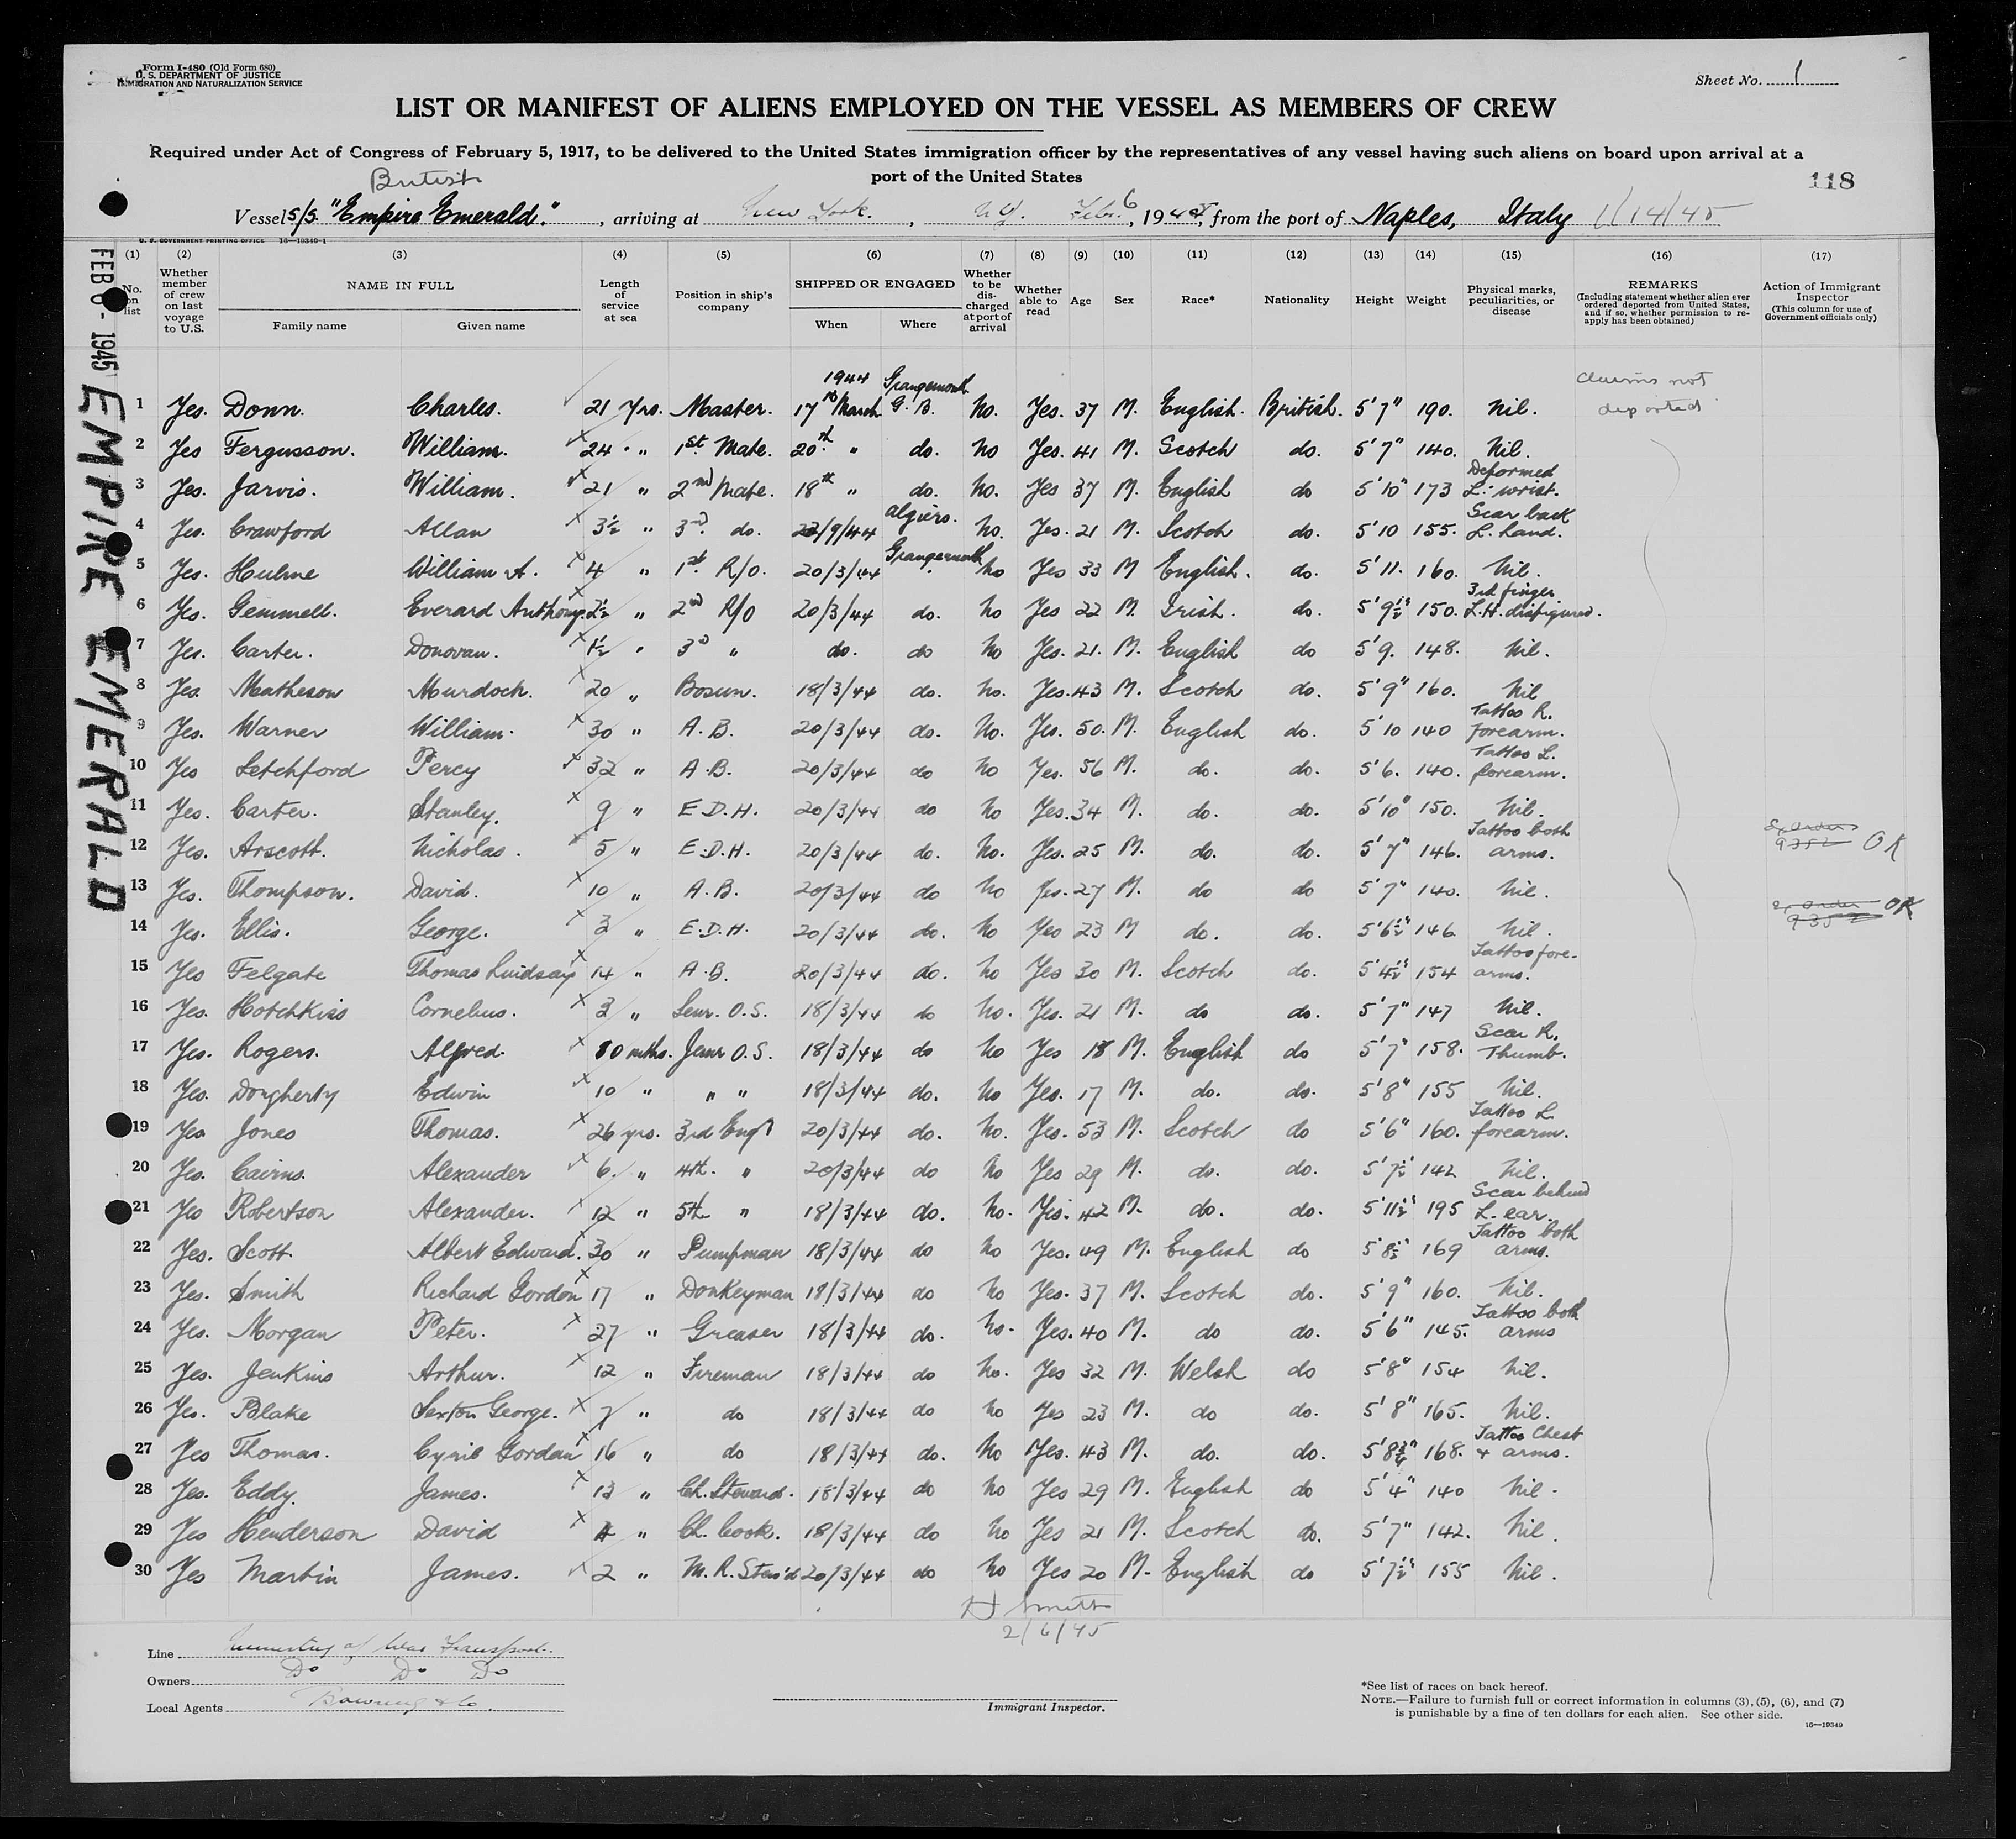 Form I-480 (Old Form 680)
U. S. DEPARTMENT OF JUSTICE
IMMIGRATION AND NATURALIZATION SERVICE
Sheet No. 1
LIST OR MANIFEST OF ALIENS EMPLOYED ON THE VESSEL AS MEMBERS OF CREW
Required under Act of Congress of February 5, 1917, to be delivered to the United States immigration officer by the representatives of any vessel having such aliens on board upon arrival at a
port of the United States
118
British
Vessel S/S. "Empire Emerald.", arriving at New York, N.Y. Feb. 6, 1945, from the port of Naples, Italy 1/14/45
U. S. GOVERNMENT PRINTING OFFICE 16—19349-1
FEB 6 - 1945 EMPIRE EMERALD
(1) (2) (3) (4) (5) (6) (7) (8) (9) (10) (11) (12) (13) (14) (15) (16) (17)
No. on list
Whether member of crew on last voyage to U.S.
NAME IN FULL
Family name Given name
Length of service at sea
Position in ship's company
SHIPPED OR ENGAGED
When Where
Whether to be discharged at port of arrival
Whether able to read
Age
Sex
Race*
Nationality
Height
Weight
Physical marks, peculiarities, or disease
REMARKS
(Including statement whether alien ever ordered deported from United States, and if so, whether permission to reapply has been obtained)
Action of Immigrant Inspector
(This column for use of Government officials only)
1944 Grangemouth claims not
1 Yes. Donn. Charles. 21 Yrs. Master. 17th March G.B. No. Yes. 37 M. English. British. 5'7" 190. Nil. deported
2 Yes Fergusson. William. 24 " 1st Mate. 20th " do. No Yes. 41 M. Scotch do. 5'7" 140. Nil.
3 Yes. Jarvis. William. 21 " 2nd Mate. 18th " do. No. Yes 37 M. English do 5'10" 173 Deformed L. wrist.
4 Yes. Crawford Allan 3½ " 3rd. do. 22/9/44 Algiers. No. Yes. 21 M. Scotch do. 5'10 155. Scar back L. hand.
5 Yes. Hulme William A. 4 " 1st. R/O. 20/3/44 Grangemouth No Yes 33 M English. do. 5'11. 160. Nil.
6 Yes. Gemmell. Everard Anthony. 2½ " 2nd R/O 20/3/44 do. No Yes 22 M. Irish. do. 5'9½" 150. 3rd finger L.H. disfigured.
7 Yes. Carter. Donovan. 1½ " 3rd " do. do No Yes. 21. M. English do 5'9. 148. Nil.
8 Yes Matheson Murdoch. 20 " Bosun. 18/3/44 do. No. Yes. 43 M. Scotch do. 5'9" 160. Nil
9 Yes. Warner William. 30 " A.B. 20/3/44 do. No. Yes. 50. M. English do. 5'10 140 Tattoo R. forearm.
10 Yes Letchford Percy 32 " A.B. 20/3/44 do No Yes. 56 M. do. do. 5'6. 140. Tattoo L. forearm.
11 Yes. Carter. Stanley. 9 " E.D.H. 20/3/44 do No Yes. 34 M. do. do. 5'10" 150. Nil.
12 Yes. Arscott. Nicholas. 5 " E.D.H. 20/3/44 do. No. Yes. 25 M. do. do. 5'7" 146. Tattoo both arms. 9352 OK
13 Yes. Thompson. David. 10 " A.B. 20/3/44 do No Yes. 27 M. do do 5'7" 140. Nil.
14 Yes. Ellis. George. 3 " E.D.H. 20/3/44 do. No Yes 23 M do. do. 5'6½" 146 Nil. 9352 OK
15 Yes Felgate Thomas Lindsay 14 " A.B. 20/3/44 do. No Yes 30 M. Scotch do. 5'4½" 154 Tattoo fore-arms.
16 Yes. Hotchkiss Cornelius. 3 " Senr. O.S. 18/3/44 do No. Yes. 21 M. do do. 5'7" 147 Nil.
17 Yes. Rogers. Alfred. 10 mths. Junr O.S. 18/3/44 do No Yes 18 M. English do 5'7" 158. Scar R. Thumb.
18 Yes. Dougherty Edwin 10 " " " 18/3/44 do. No Yes. 17 M. do. do. 5'8" 155 Nil.
19 Yes Jones Thomas. 26 yrs. 3rd Engr 20/3/44 do. No. Yes. 53 M. Scotch do 5'6" 160. Tattoo L forearm.
20 Yes. Cairns. Alexander 6. " 4th. " 20/3/44 do No Yes 29 M. do. do. 5'7½" 142 Nil.
21 Yes Robertson Alexander. 12 " 5th " 18/3/44 do. No. Yes. 42 M. do. do. 5'11½" 195 Scar behind L. ear.
22 Yes. Scott. Albert Edward. 30 " Pumpman 18/3/44 do No Yes. 49 M. English do 5'8½" 169 Tattoo both arms.
23 Yes. Smith Richard Gordon 17 " Donkeyman 18/3/44 do No Yes. 37 M. Scotch do. 5'9" 160. Nil.
24 Yes. Morgan Peter. 27 " Greaser 18/3/44 do. No. Yes. 40 M. do do. 5'6" 145. Tattoo both arms
25 Yes. Jenkins Arthur. 12 " Fireman 18/3/44 do No. Yes 32 M. Welsh do 5'8" 154 Nil.
26 Yes. Blake Sexton George. 7 " do 18/3/44 do No Yes 23 M. do do. 5'8" 165. Nil.
27 Yes Thomas. Cyril Gordon 16 " do 18/3/44 do. No Yes. 43 M. do. do. 5'8¾" 168. Tattoo Chest & arms.
28 Yes. Eddy. James. 13 " Ch. Steward. 18/3/44 do No Yes 29 M. English do 5'4" 140 Nil.
29 Yes Henderson David 4 " Ch. Cook. 18/3/44 do No Yes 21 M. Scotch do. 5'7" 142. Nil.
30 Yes Martin James. 2 " M.R. Stew'd 20/3/44 do No Yes 20 M. English do 5'7½" 155 Nil.
Smith
2/6/45
Line Ministry of War Transport.
Owners Do Do Do
Local Agents Bowring & Co.
Immigrant Inspector.
*See list of races on back hereof.
NOTE.—Failure to furnish full or correct information in columns (3), (5), (6), and (7)
is punishable by a fine of ten dollars for each alien. See other side.
16—19349